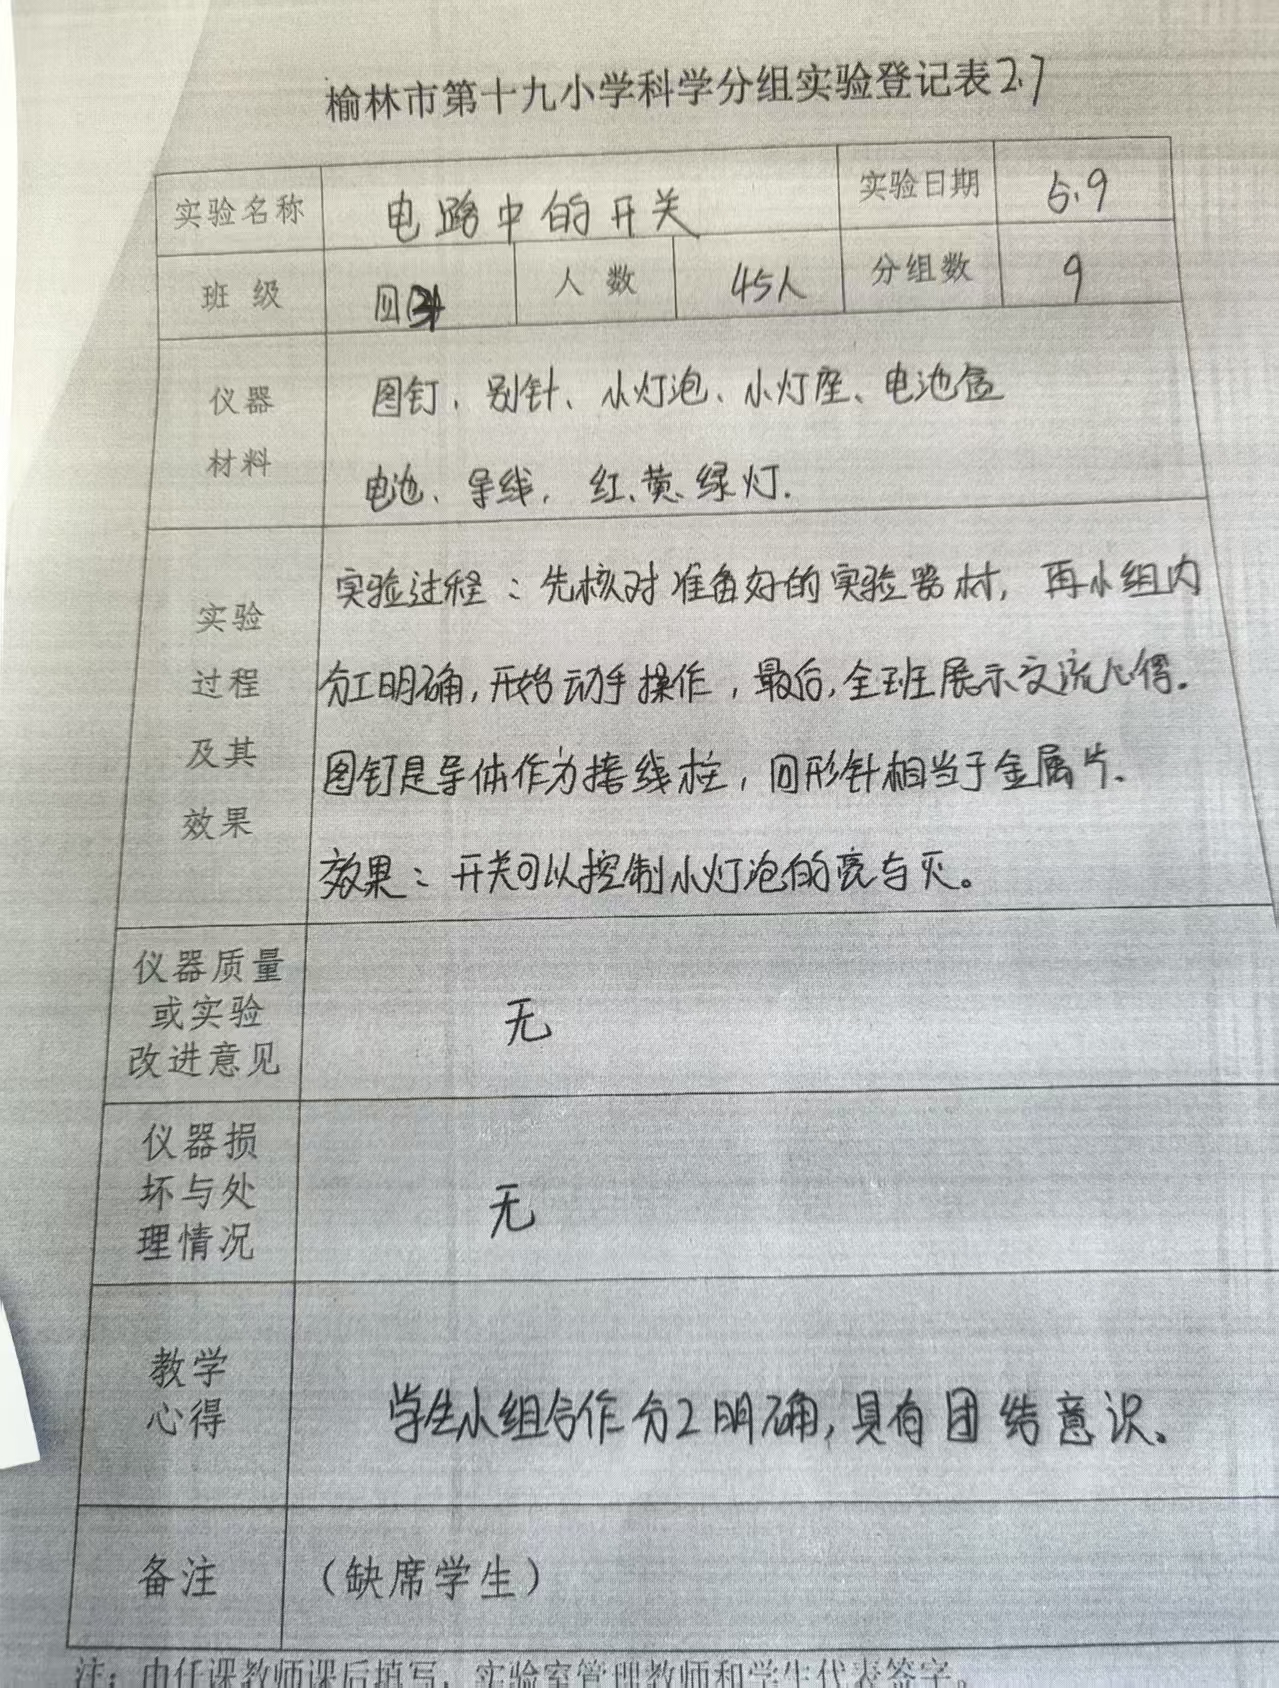 榆林市第十九小学科学分组实验登记表2.7
实验名称 电路中的开关 实验日期 5.9
班级 四 人数 45人 分组数 9
仪器 图钉、别针、小灯泡、小灯座、电池盒
材料 电池、导线, 红、黄、绿灯.
实验 实验过程：先核对准备好的实验器材, 再小组内
过程 分工明确,开始动手操作,最后,全班展示交流心得.
及其 图钉是导体作为接线柱,回形针相当于金属片.
效果 效果：开关可以控制小灯泡的亮与灭。
仪器质量
或实验 无
改进意见
仪器损
坏与处 无
理情况
教学
心得 学生小组合作分工明确,具有团结意识.
备注 （缺席学生）
注：由任课教师课后填写，实验室管理教师和学生代表签字。